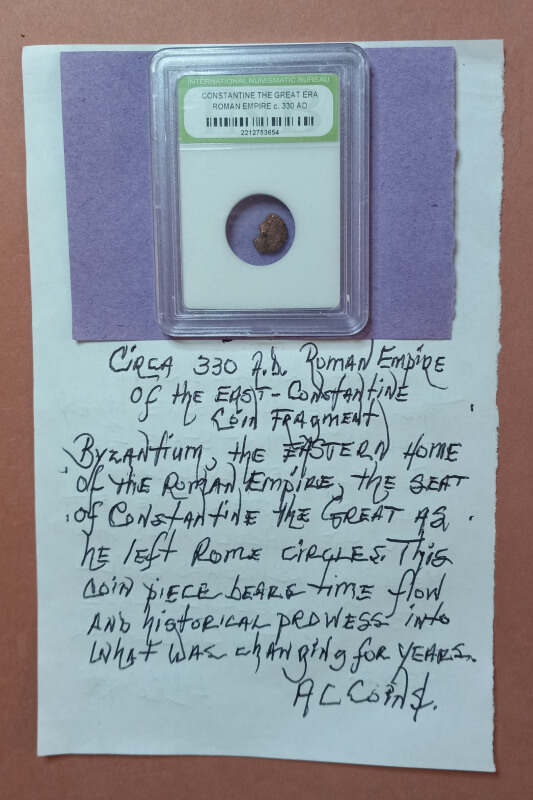 INTERNATIONAL NUMISMATIC BUREAU
CONSTANTINE THE GREAT ERA
ROMAN EMPIRE c. 330 AD
2212753654
CIRCA 330 A.D. ROMAN EMPIRE
of the EAST-CONSTANTINE
COIN FRAGMENT
BYZANTIUM, the EASTERN HOME
of the ROMAN EMPIRE, the SEAT
of CONSTANTINE the GREAT AS
he left ROME CIRCLES. This
COIN PIECE bears time flow
AND historical PROWESS into
what was changing for years.
AC COINS.